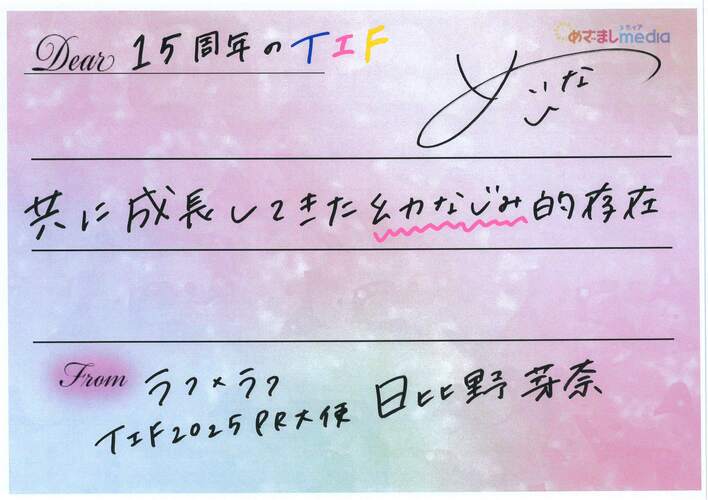 Dear 15周年のTIF
メディア
めざましmedia
めいな
共に成長してきた幼なじみ的存在
From ラフ×ラフ
TIF2025PR大使 日比野芽奈